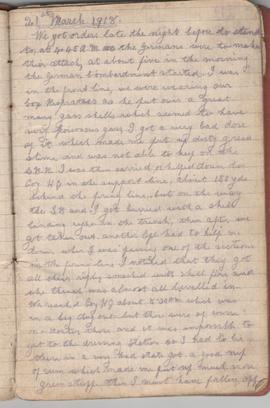 21st March 1918.
We got orders late the night before to stand
to, at 4.45 A.M. as the Germans were to make
their attack, at about five in the morning
the German bombardment started. I was
in the front line, we were wearing our
Box Respirators as he put over a great
many gas shells which seemed to have
very poisonous gas, I got a very bad dose
of it which made me put up dirty green
slime, and was not able to keep on the
S.B.R. I was then carried or helped down to
Coy H.Q. in the support line, about 150 yds
behind the firing line, but on the way
the S.B. and I got buried with a shell
landing right in the trench, then after we
got taken out another Cpl had to help me
down, when I was passing one of the sections
in the firing line I noticed that they got
all their rifles smashed with shell fire and
the trench was almost all levelled in.
We reached Coy H.Q. about 5.30 A.M. which was
in a big dug out but there were of course
no doctor there and it was impossible to
get to the dressing station so I had to lie
there in a very bad state, got a good nip
of rum which made me put up much more
green stuff, then I must have fallen off